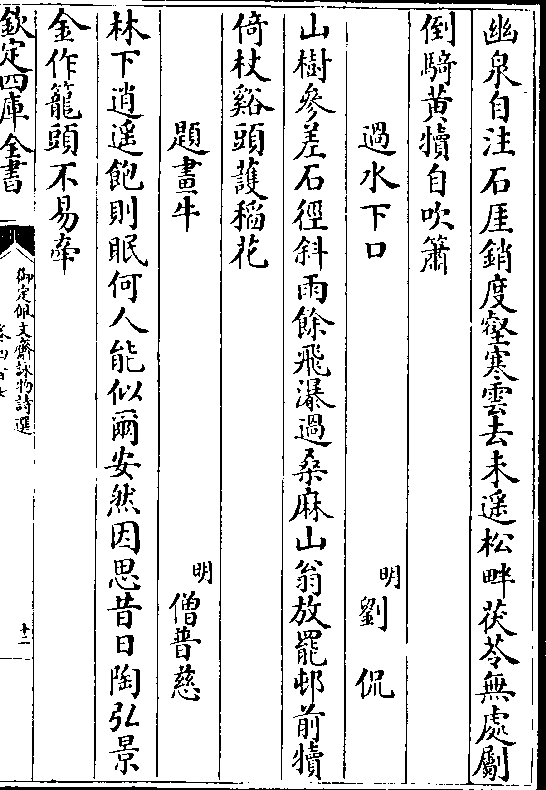 幽泉自注石厓銷度壑寒雲去未遥松畔茯苓無處劚
倒騎黄犢自吹簫
過水下口
明 劉侃
山樹參差石徑斜雨餘飛瀑過桑麻山翁放罷邨前犢
倚杖谿頭䕶稲花
題畫牛
明 僧普慈
林下逍遥飽則眠何人能似爾安然因思昔日陶弘景
金作籠頭不易牽
欽定四庫全書
御定佩文齋詠物詩選
十二